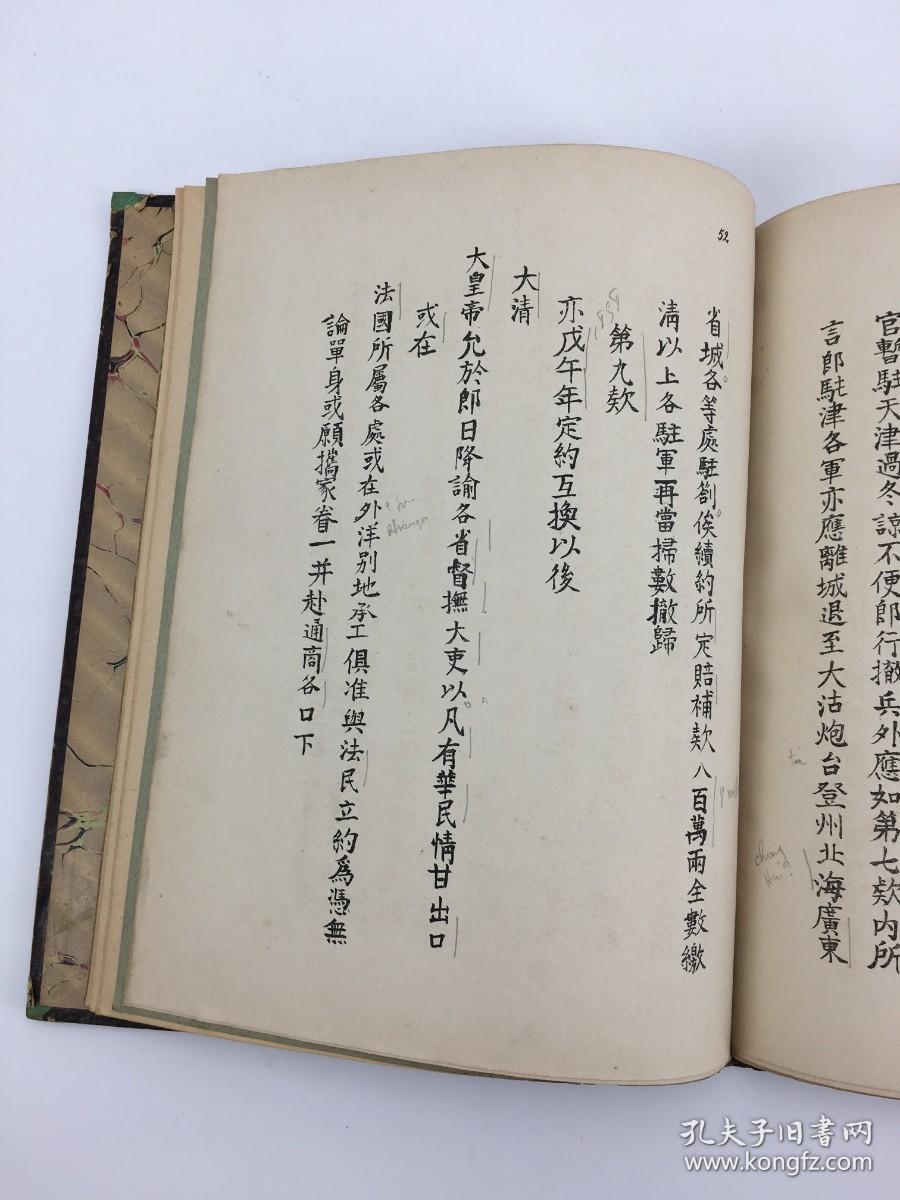 官暫駐天津過冬諒不便郎行撤兵外應如第七欵內所
言郎駐津各軍亦應離城退至大沽炮台登州北海廣東
52
省城各等處駐劄俟續約所定賠補欵八百萬兩全數繳
清以上各駐軍再當掃數撤歸
第九欵
亦戊午年定約互換以後
大清
大皇帝允於郎日降諭各省督撫大吏以凡有華民情甘出口
或在
法國所屬各處或在外洋别地承工俱准與法民立約為憑無
論單身或願攜家眷一并赴通商各口下
孔夫子旧书网
www.kongfz.com